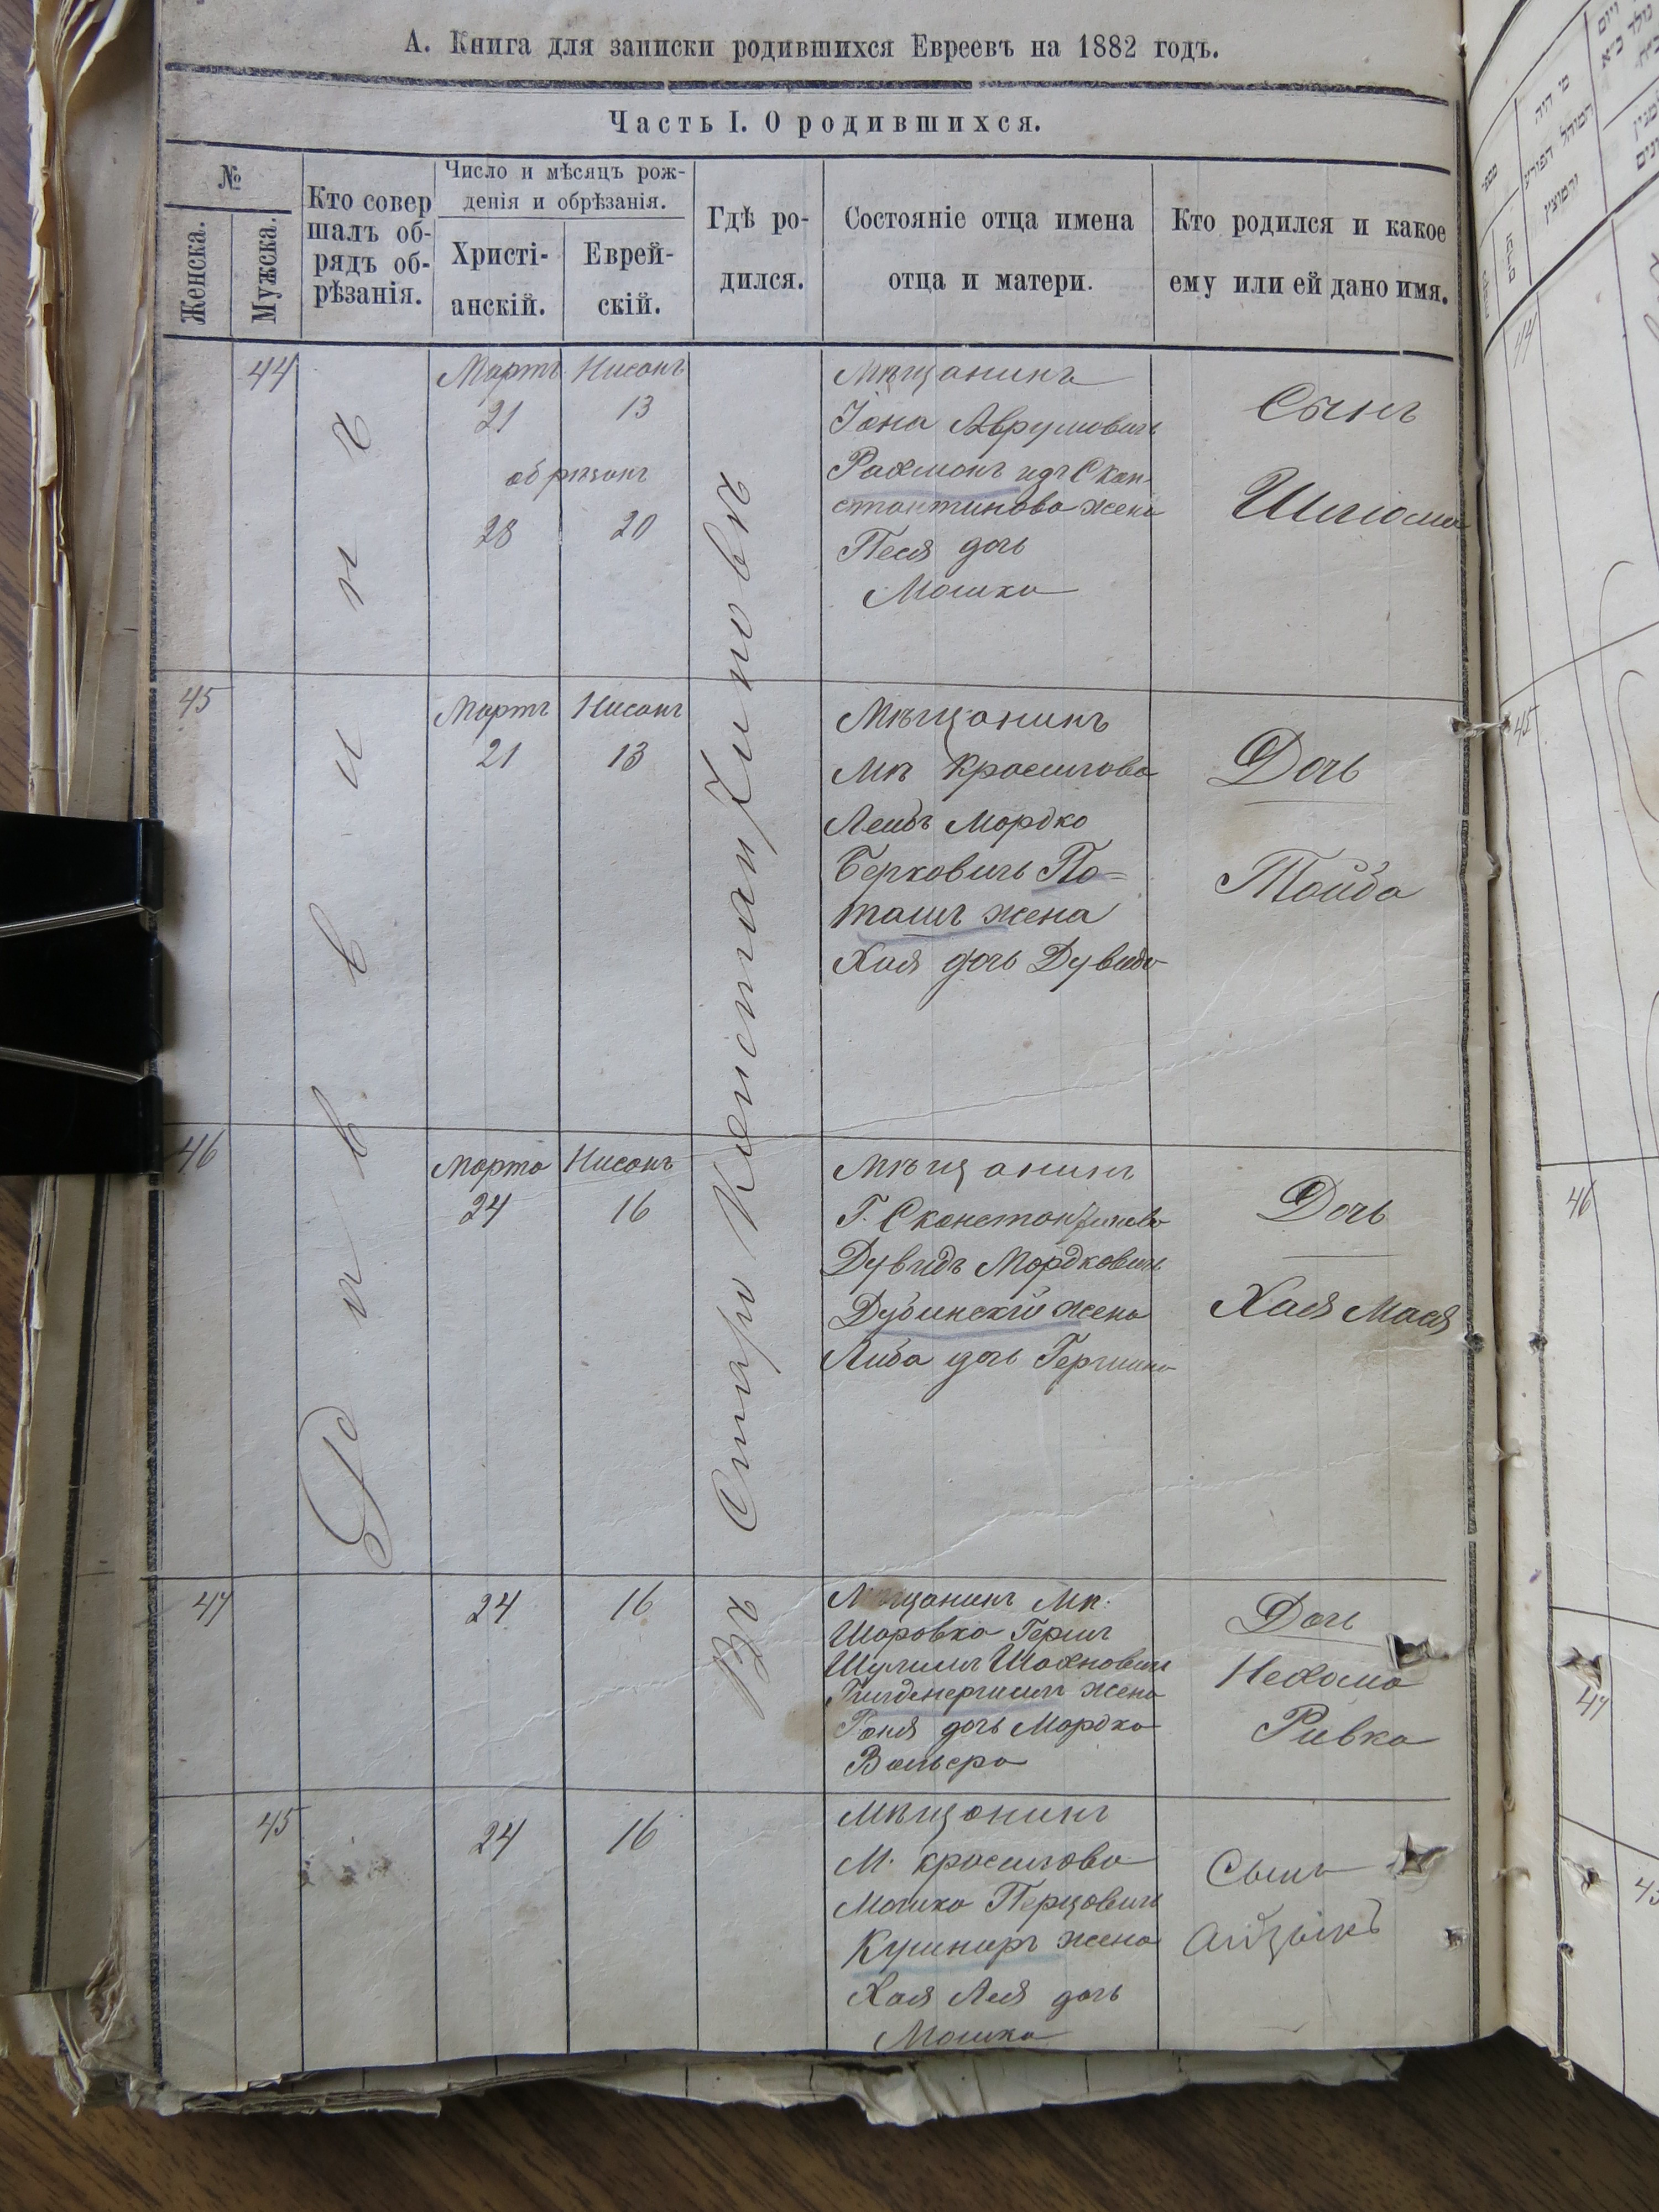 А. Книга для записки родившихся Евреевъ на 1882 годъ.
Часть I. О родившихся.
№
Женска.
Мужска.
Кто совер
шалъ об-
рядъ об-
рѣзанія.
Число и мѣсяцъ рож-
денія и обрѣзанія.
Христі-
анскій.
Еврей-
скій.
Гдѣ ро-
дился.
Состояніе отца имена
отца и матери.
Кто родился и какое
ему или ей дано имя.
Раввинъ
Въ Старо Констан/тиновѣ
44
Мартъ Нисанъ
21 13
обрѣзанъ
28 20
Мѣщанинъ
Іона Аврумовичъ
Рахманъ изъ Скон-
стантинова жена
Песя дочь
Мошка
Сынъ
Шліома
45
Мартъ Нисанъ
21 13
Мѣщанинъ
Мѣ Красилова
Лейбъ Мордко
Берковичъ По=
ташъ жена
Хая дочь Дувида
Дочь
Тойба
46
Марта Нисанъ
24 16
Мѣщанинъ
Г. Сконстантинова
Дувидъ Мордковичъ
Дубинскій жена
Либа дочь Гершика
Дочь
Хая Мася
47
24 16
Мѣщанинъ Мѣ.
Шаровка Герш
Шулим Шахнович
жена
дочь Мордка
Дочь
Нехама
Ривка
45
24 16
Мѣщанинъ
М. Красилова
Мошко Перцовичъ
Кушниръ жена
Хая Лея дочь
Мошка
Сынъ
Айзыкъ
מי היה
המוהל
44
45
46
47
45